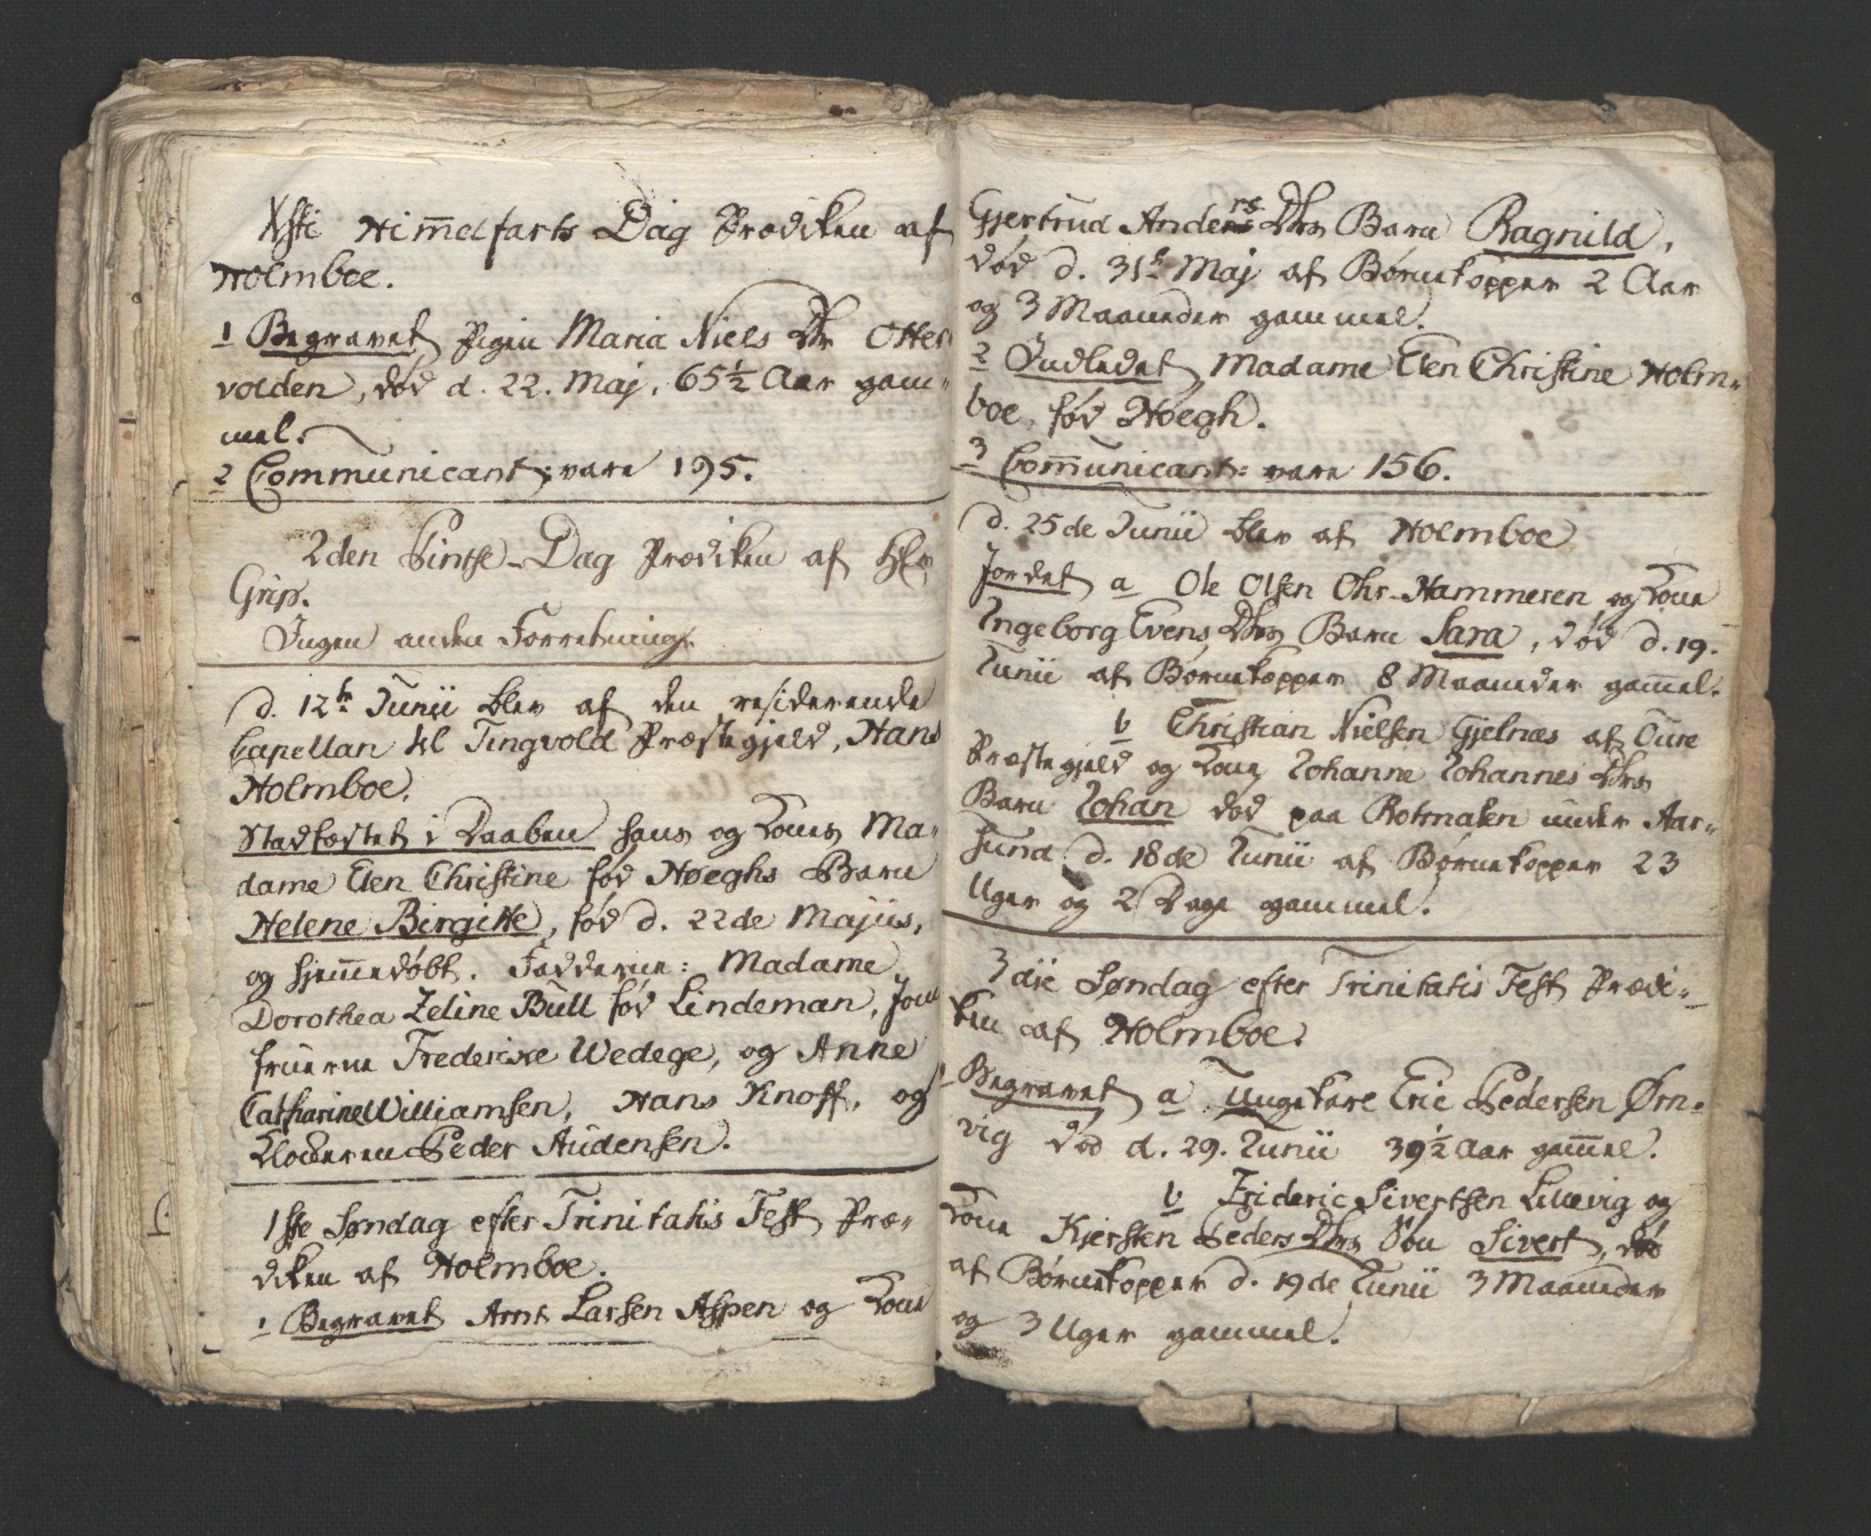 Xsti Himmelfarts Dag Prædiken af
Holmboe.
1 Begravet Pigen Maria Niels Dtr Otter
volden, død d. 22. Maj, 65½ Aar gam-
mel.
2 Communicant: vare 195.
2den Pintse-Dag Prædiken af Hr
Grip.
Ingen anden Forretning.
d. 12te Junii blev af den residerende
Capellan til Tingvold Præstegjeld, Hans
Holmboe,
Stadfæstet i Daaben hans og Kones Ma-
dame Elen Christine fød Høeghs Barn
Helene Birgitte, fød d. 22de Majus,
og hjemmedøbt. Fadderne: Madame
Dorothea Zeline Bull fød Lindeman, Jom
fruerne Frederikke Wedege, og Anne
Catharine Williamsen, Hans Knoff, og
Klokkeren Peder Audensen.
1ste Søndag efter Trinitatis Fest Præ-
diken af Holmboe.
1 Begravet Arnt Larsen Aspen og Kone
Gjertrud Anders Dtrs Barn Ragnild,
død d. 31te Maj af Børnekopper 2 Aar
og 3 Maaneder gammel.
2 Indledet Madame Elen Christine Holm-
boe, fød Høegh.
3 Communicant: vare 156.
d. 25de Junii blev af Holmboe
Jordet a Ole Olsen Ohr-Hammeren og Kone
Ingeborg Evens Dtrs Barn Sara, død d. 19.
Junii af Børnekopper 8 Maaneder gammel.
b Christian Nielsen Gjelnæs af Oure
Præstegjeld og Kone Johanne Johannes Dtrs
Barn Johan død paa Rotnaken under Aar-
sund d. 18de Junii af Børnekopper 23
Uger og 2 Dage gammel.
3die Søndag efter Trinitatis Fest Prædi-
ken af Holmboe.
1 Begravet a Ungekare Eric Pedersen Ørn-
vig død d. 29. Junii 39½ Aar gammel.
b Frideric Sivertsen Lillevig og
Kone Kjersten Peders Dtrs Søn Sivert, død
af Børnekopper d. 19de Junii 3 Maaneder
og 3 Uger gammel.